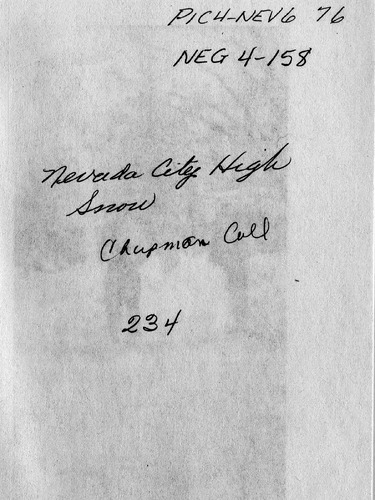 PIC4-NEV6 76
NEG 4-158
Nevada City High
Snow
Chapman Coll
234